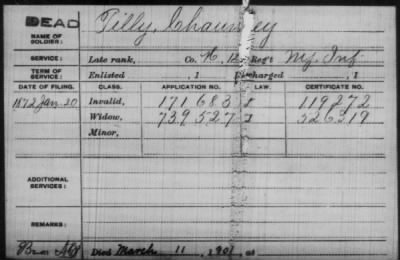 DEAD
Tilly, Chauncey
NAME OF SOLDIER:
SERVICE: Late rank, Co. H, 12 Reg't Inf
TERM OF SERVICE: Enlisted , 1 Discharged , 1
DATE OF FILING. CLASS. APPLICATION NO. LAW. CERTIFICATE NO.
1872 Jan. 20 Invalid, 171683 119272
Widow, 739527 526319
Minor,
ADDITIONAL SERVICES:
REMARKS:
Died March 11, 1901, at